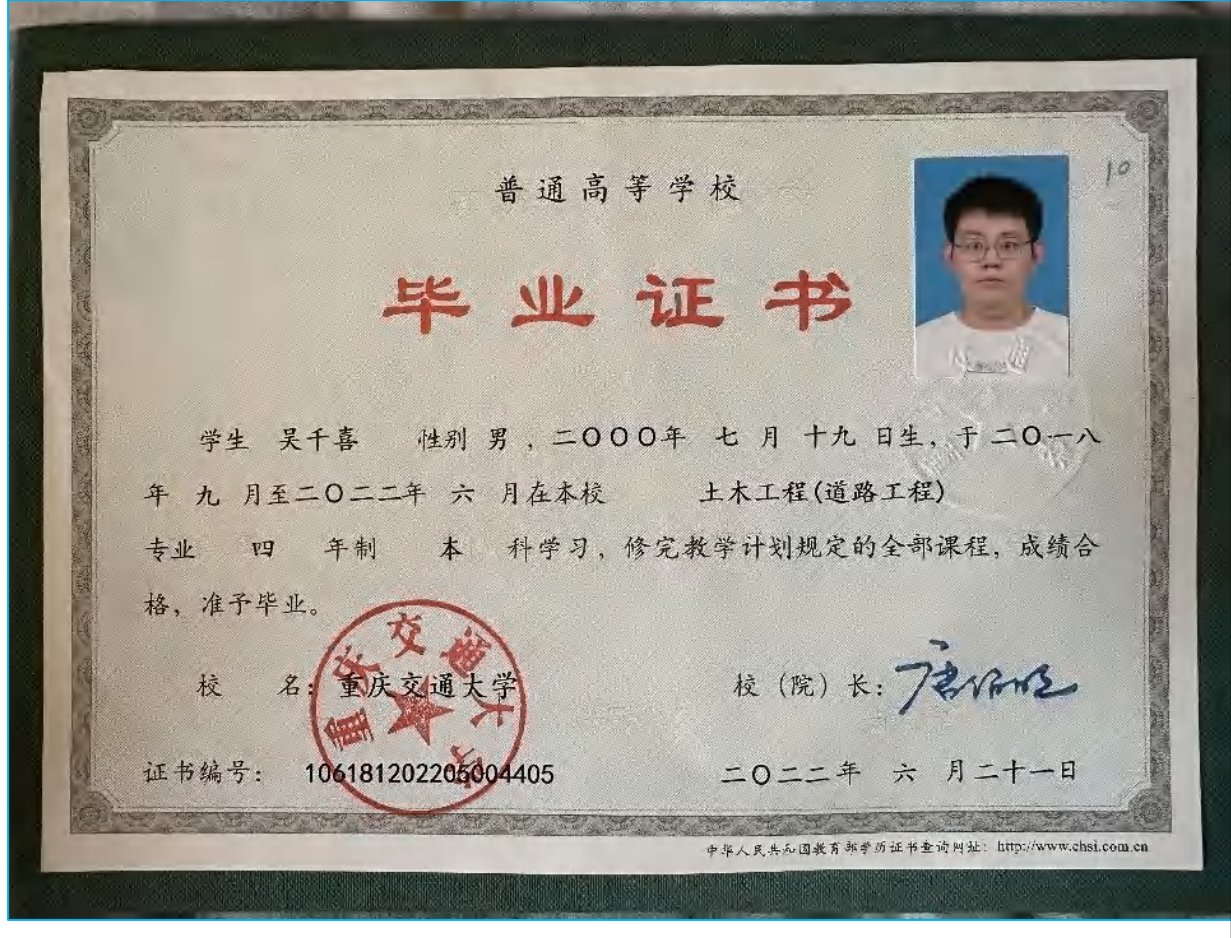 普通高等学校
10
毕业证书
学生 吴千喜 性别 男 , 二〇〇〇年 七 月 十九 日生, 于 二〇一八
年 九 月至二〇二二年 六 月在本校 土木工程(道路工程)
专业 四 年制 本 科学习, 修完教学计划规定的全部课程, 成绩合
格, 准予毕业。
重庆交通大学
校 名: 重庆交通大学 校 (院) 长:
证书编号: 106181202205004405 二〇二二年 六 月二十一日
中华人民共和国教育部学历证书查询网址: http://www.chsi.com.cn